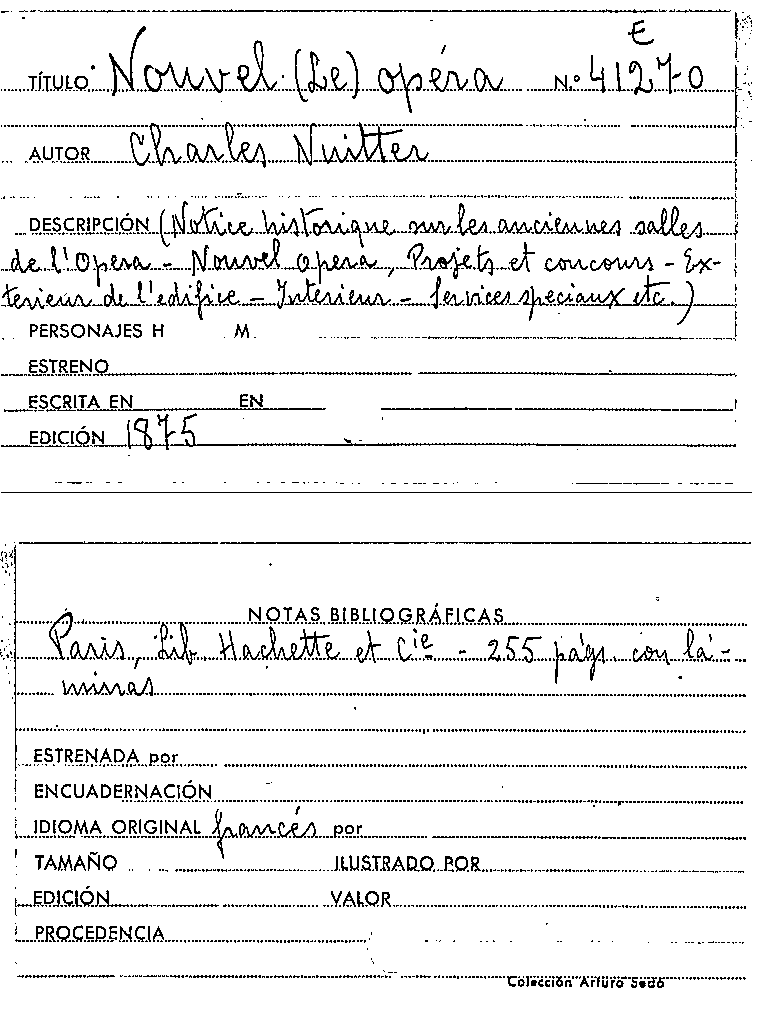 E
TÍTULO Nouvel (Le) opéra N.º 41270
AUTOR Charles Nuitter
DESCRIPCIÓN (Notice historique sur les anciennes salles
de l'Opera - Nouvel opera, Projets et concours - Ex-
terieur de l'edifice - Interieur - Services speciaux etc.)
PERSONAJES H M.
ESTRENO
ESCRITA EN EN
EDICIÓN 1875
NOTAS BIBLIOGRÁFICAS
Paris, Lib. Hachette et Cie - 255 págs. con lá-
minas
ESTRENADA por
ENCUADERNACIÓN
IDIOMA ORIGINAL francés por
TAMAÑO ILUSTRADO POR
EDICIÓN VALOR
PROCEDENCIA
Colección Arturo Sedó